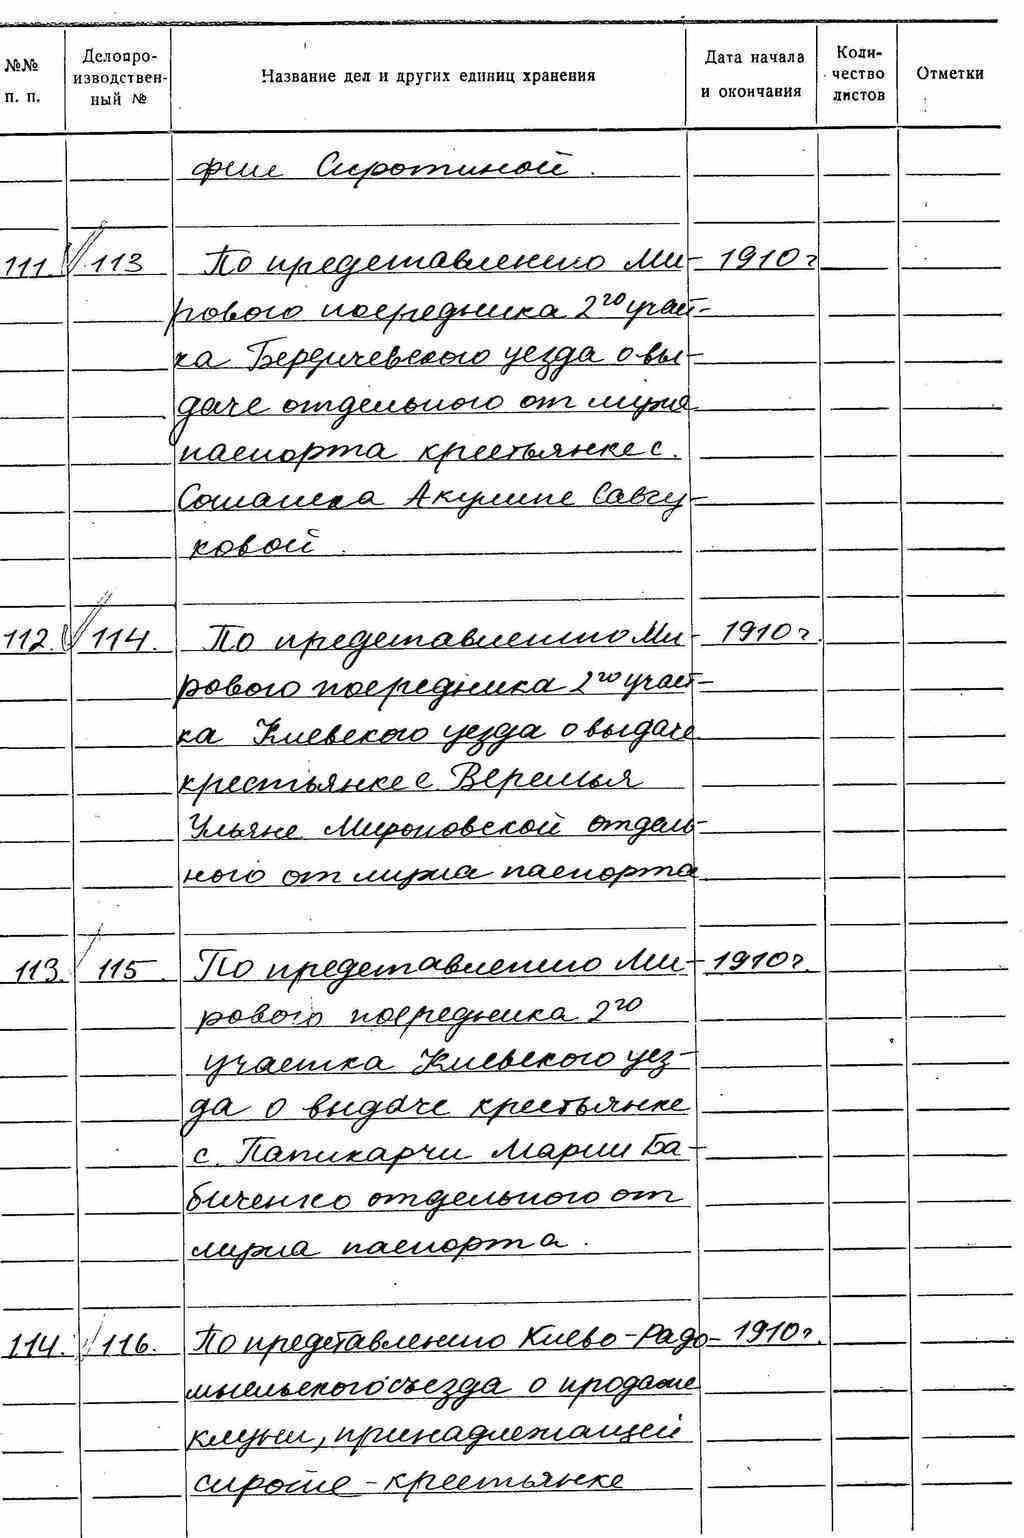 №№ п. п. Делопроизводствен- ный № Название дел и других единиц хранения Дата начала и окончания Коли- чество листов Отметки
фии Сиротиной.
111. 113 По представлению Ми- 1910 г
рового посредника 2го участ-
ка Бердичевского уезда о вы-
даче отдельного от мужа
паспорта крестьянке с.
Сошанска Акулине Савчу-
ковой.
112. 114. По представлению Ми- 1910 г.
рового посредника 2го участ-
ка Киевского уезда о выдаче
крестьянке с Веремья
Ульяне Мироновской отдель-
ного от мужа паспорта
113. 115. По представлению Ми- 1910 г.
рового посредника 2го
участка Киевского уез-
да о выдаче крестьянке
с. Пашкарчи Марии Ба-
биченко отдельного от
мужа паспорта.
114. 116. По представлению Киево-Радо- 1910 г.
мысльского съезда о продаже
клуни, принадлежащей
сироте - крестьянке